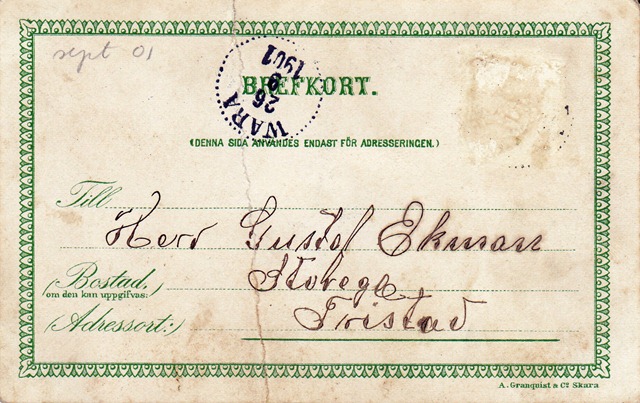 sept 01
WARA
26 9
1901
BREFKORT.
(DENNA SIDA ANVÄNDES ENDAST FÖR ADRESSERINGEN.)
Till
Herr Gustof Ekman
(Bostad,
om den kan uppgifvas:)
Storegl
(Adressort:)
Fristad
A. Granquist & Co Skara